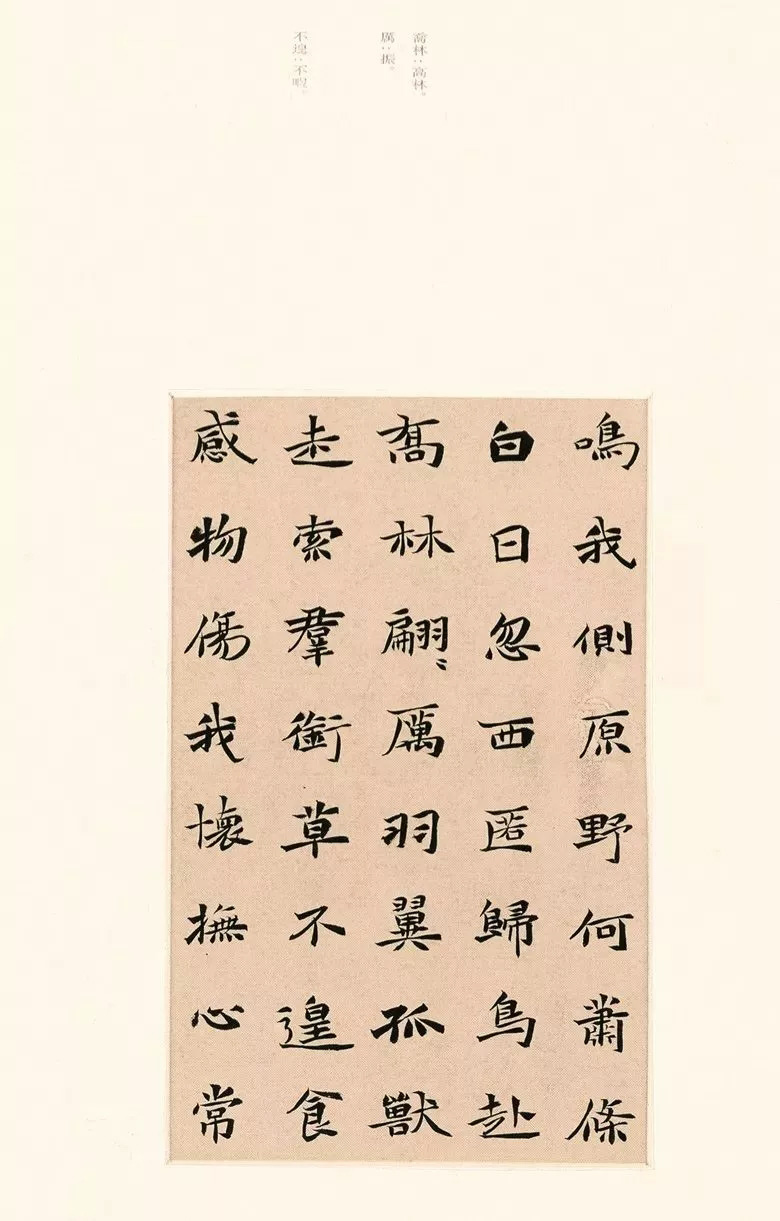 喬林：高林。
厲：振。
不遑：不暇。
鳴我側原野何蕭條
白日忽西匿歸鳥赴
喬林翩〻厲羽翼孤獸
走索羣銜草不遑食
感物傷我懷撫心常